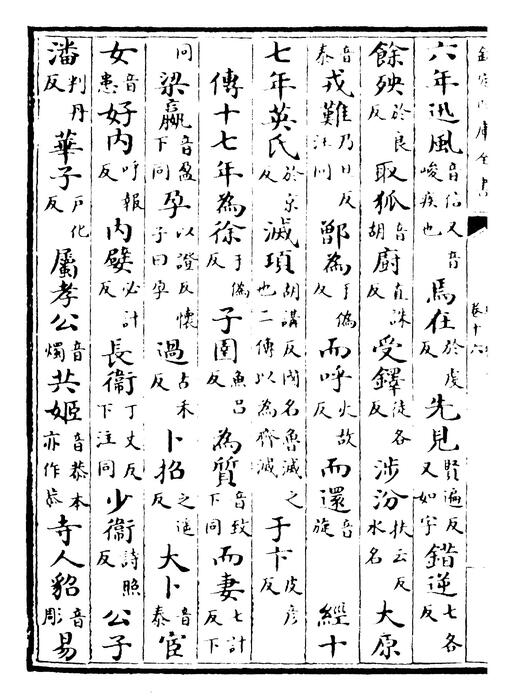 欽定四庫全書
卷十六
六年迅風音信又音峻疾也焉在於虔反先見賢遍反又如字錯逆七各反
餘殃於良反取狐音胡廚直誅反受鐸徒各反涉汾扶云反水名大原
音泰戎難乃旦反注同鄫為于偽反而呼火故反而還音旋經十
七年英氏於京反滅項胡講反國名魯滅之也二傳以為齊滅于卞皮彥反
傳十七年為徐于偽反子圉魚呂反為質音致下同而妻七計反下
同梁嬴音盈下同孕以證反懷子曰孕過古禾反卜招之遥反大卜音泰宦
女音患好内呼報反内嬖必計反長衞丁丈反下注同少衞詩照反公子
潘判丹反華子戶化反屬孝公音燭共姬音恭本亦作恭寺人貂音彫易